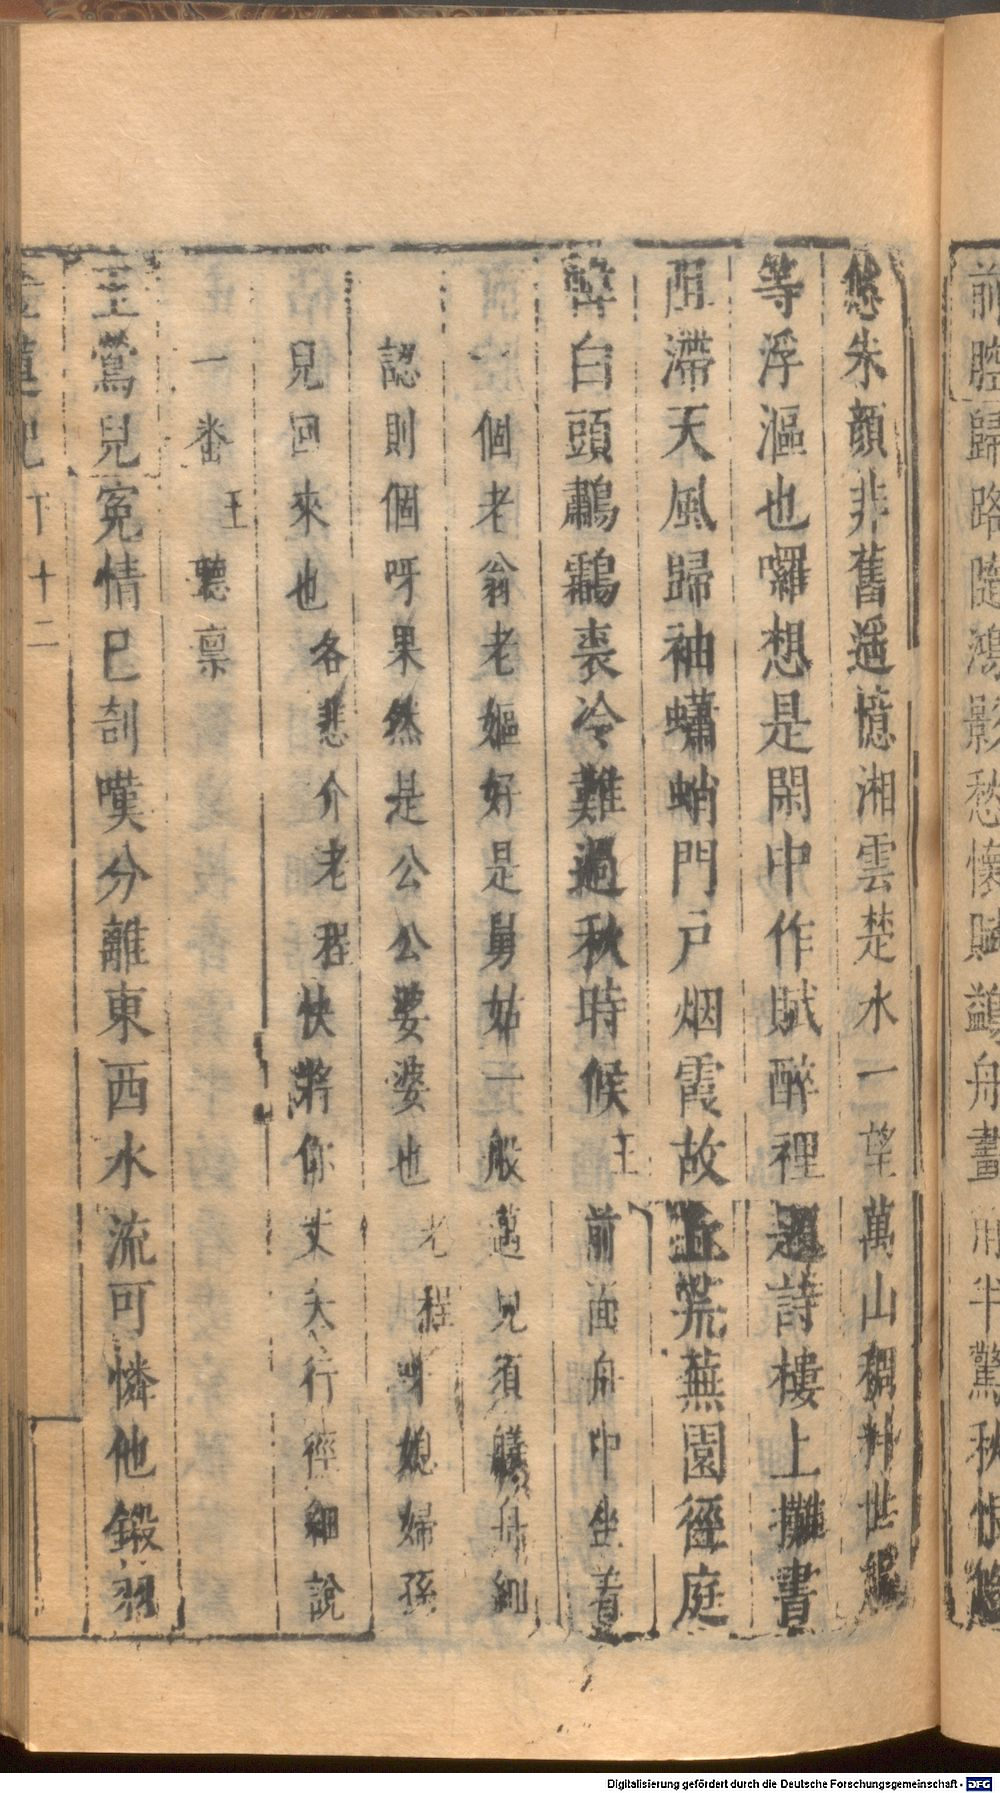 前腔歸路隨鴻影愁懷賦鷁舟畫
半驚秋
悠朱顏非舊遥憶湘雲楚水一望萬山稠料世
等浮漚也囉想是閑中作賦醉裡題詩樓上攤書
阻滯天風歸袖蠨蛸門戶烟霞故丘荒蕪園徑庭
白頭鸘裘冷難過秋時候 王 前面舟中坐着
個老翁老嫗好是舅姑一般邁兒須艤舟細
認則個呀果然是公公婆婆也 老 程 呀媳婦孫
兒回來也 各悲介 老 程 快將你丈夫行徑細說
一番 王 聽禀
玉鶯兒寃情已剖嘆分離東西水流可憐他鍛羽
下 十二
Digitalisierung gefördert durch die Deutsche Forschungsgemeinschaft - DFG